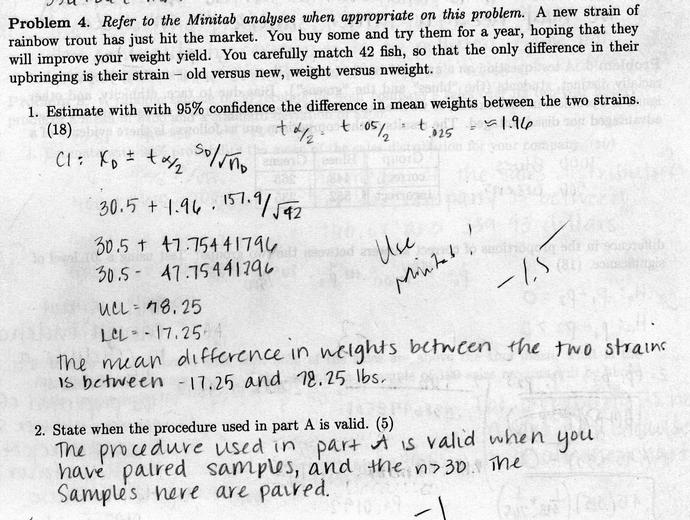 Problem 4. Refer to the Minitab analyses when appropriate on this problem. A new strain of
rainbow trout has just hit the market. You buy some and try them for a year, hoping that they
will improve your weight yield. You carefully match 42 fish, so that the only difference in their
upbringing is their strain – old versus new, weight versus nweight.
1. Estimate with with 95% confidence the difference in mean weights between the two strains.
(18)
t α/2 = t .05/2 = t .025 = ≈ 1.96
CI: X̄D ± t α/2 SD/√nD
30.5 + 1.96 · 157.9/√42
30.5 + 47.75441796
30.5 - 47.75441796
Use
Minitab!
-1.5
UCL = 78.25
LCL = -17.25
The mean difference in weights between the two strains
is between -17.25 and 78.25 lbs.
2. State when the procedure used in part A is valid. (5)
The procedure used in part A is valid when you
have paired samples, and the n>30. The
samples here are paired.
-1